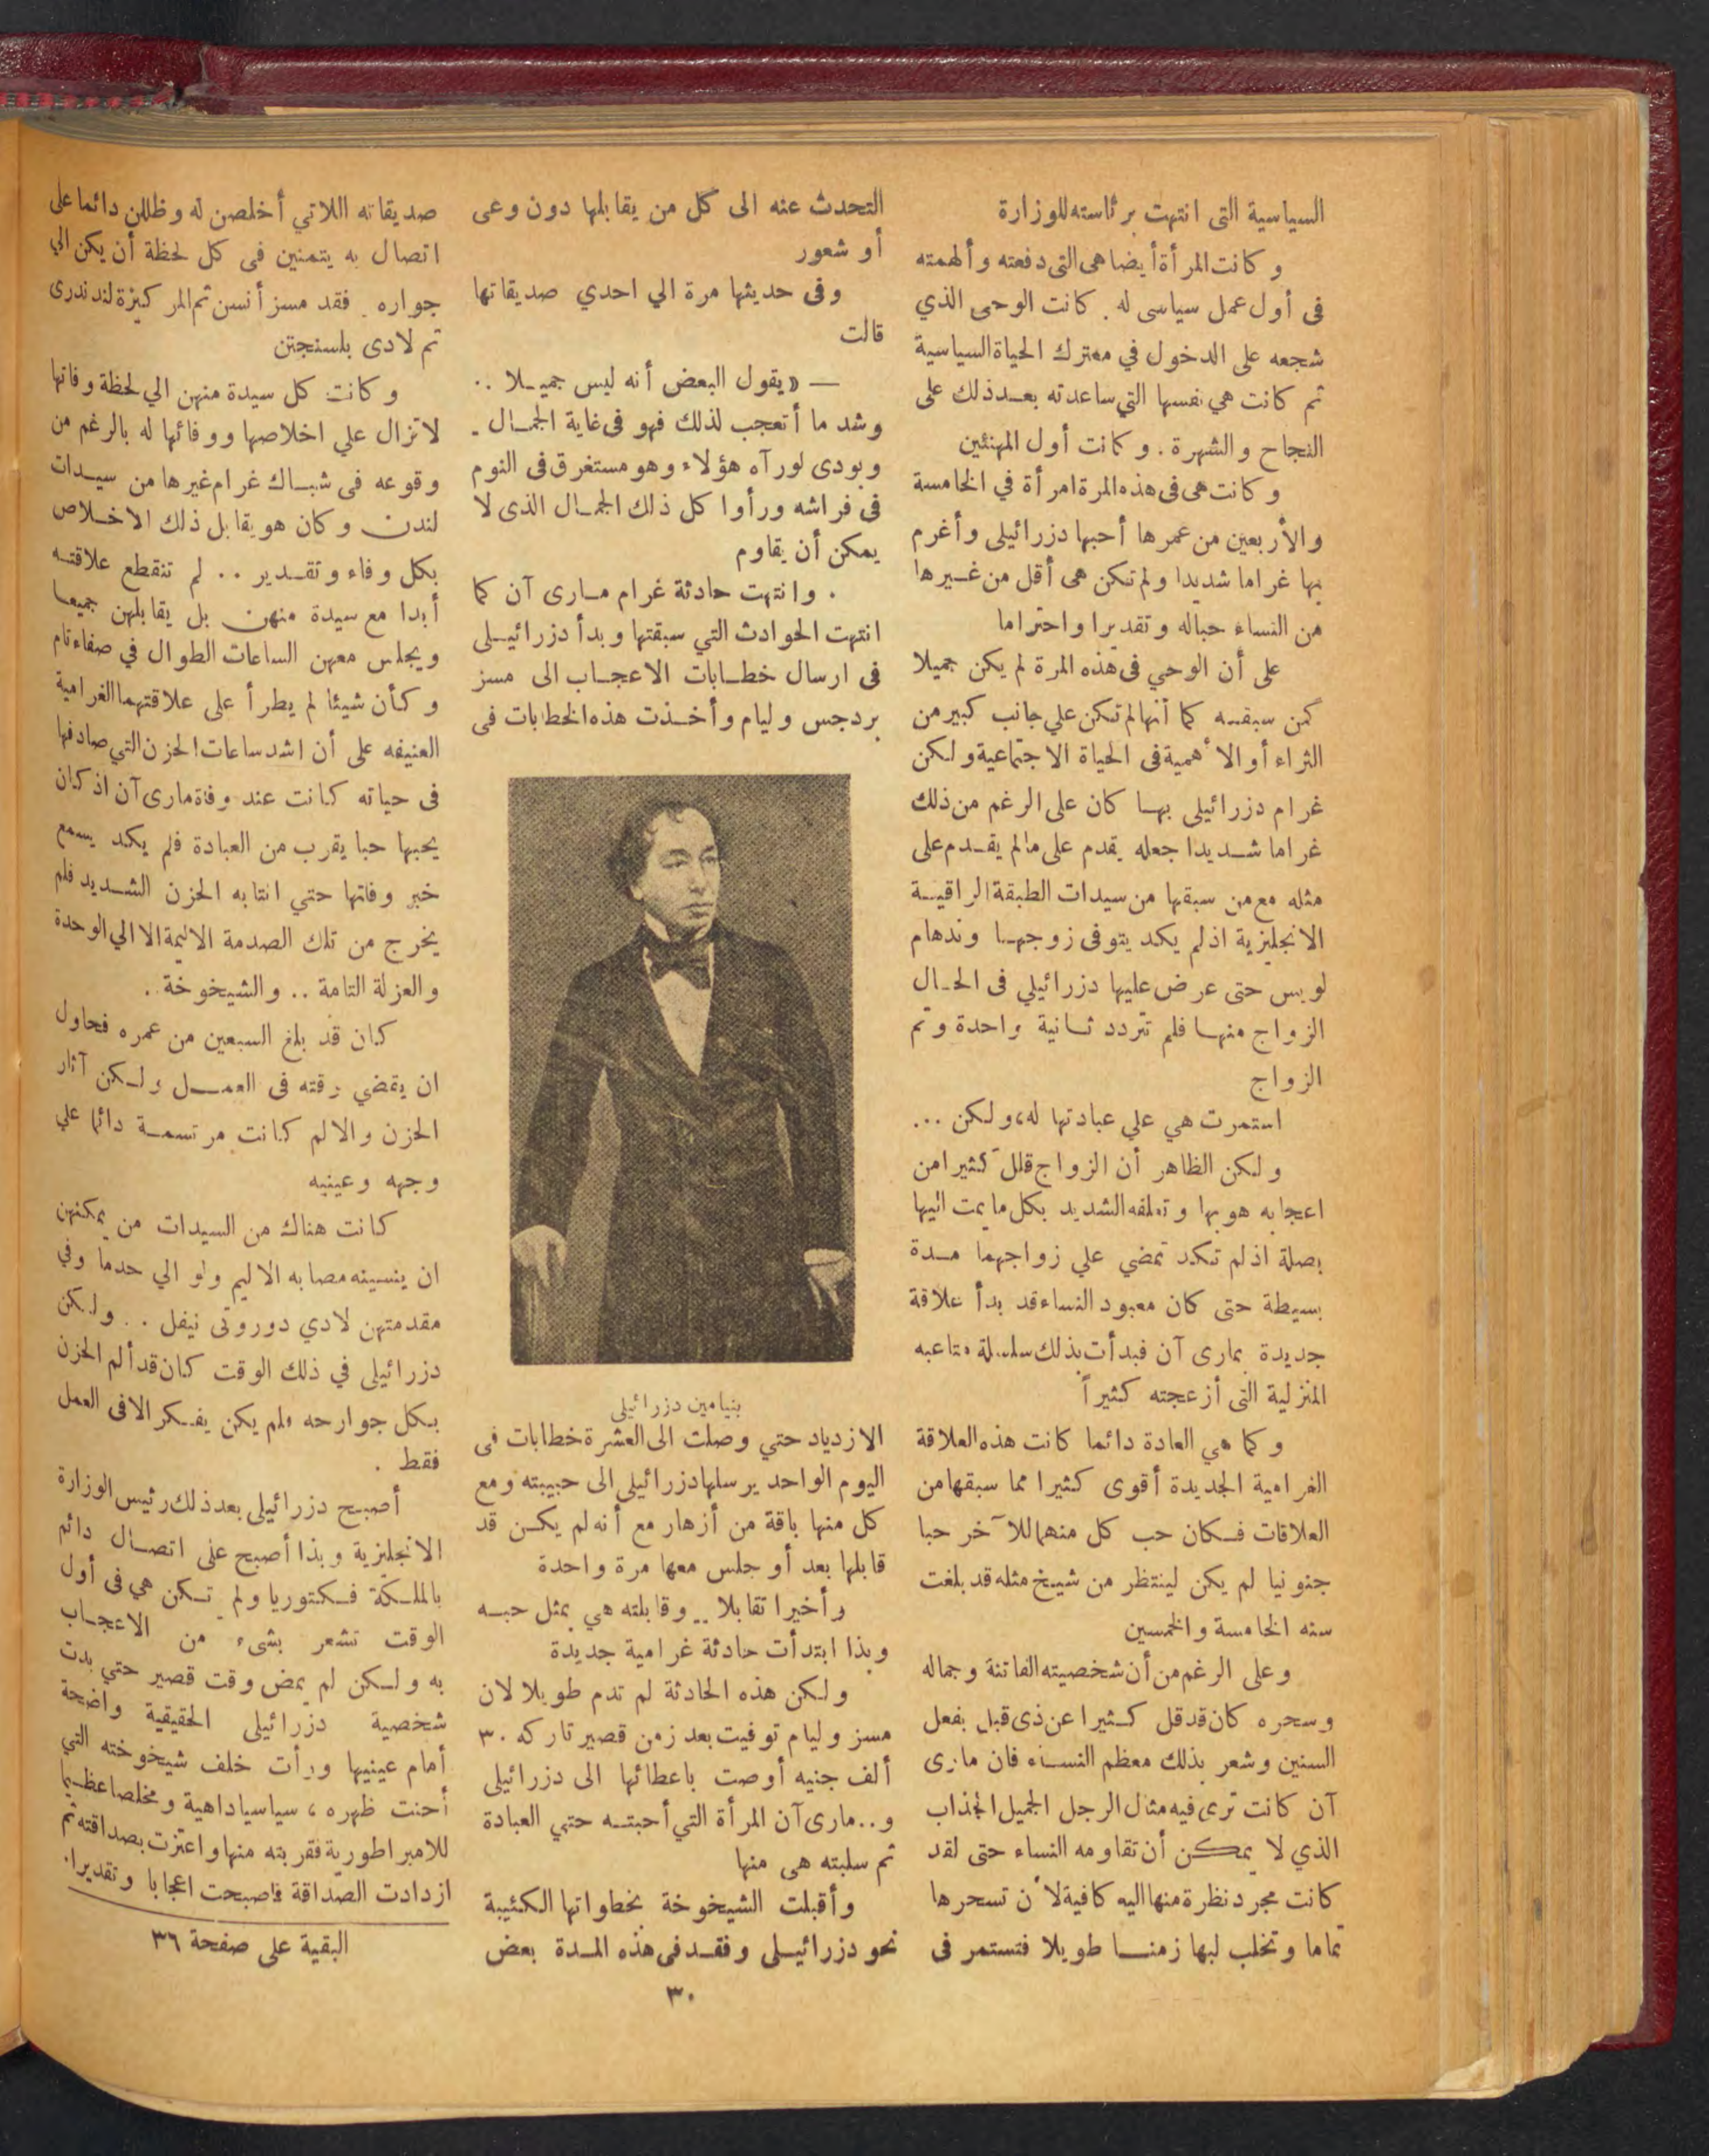 السياسية التى انتهت برئاسته للوزارة
وكانت المرأة أيضا هى التى دفعته وألهمته
فى أول عمل سياسى له . كانت الوحى الذي
شجعه على الدخول في معترك الحياة السياسية
ثم كانت هي نفسها التي ساعدته بعد ذلك على
النجاح والشهرة . وكانت أول المهنئين
وكانت هى فى هذه المرة امرأة في الخامسة
والأربعين من عمرها أحبها دزرائيلى وأغرم
بها غراما شديدا ولم تكن هى أقل من غيرها
من النساء حباله وتقديرا واحتراما
على أن الوحي فى هذه المرة لم يكن جميلا
كمن سبقنه كما أنها لم تكن علي جانب كبير من
الثراء أو الأهمية فى الحياة الاجتماعية ولكن
غرام دزرائيلى بها كان على الرغم من ذلك
غراما شديدا جعله يقدم على مالم يقدم على
مثله مع من سبقها من سيدات الطبقة الراقية
الانجليزية اذ لم يكد يتوفى زوجها وندهام
لويس حتى عرض عليها دزرائيلي فى الحال
الزواج منها فلم تتردد ثانية واحدة وتم
الزواج
استمرت هي علي عبادتها له، ولكن ...
ولكن الظاهر أن الزواج قلل كثيرا من
اعجابه هو بها وتعلقه الشديد بكل ما يمت اليها
بصلة اذ لم تكد تمضي علي زواجهما مدة
بسيطة حتى كان معبود النساء قد بدأ علاقة
جديدة بمارى آن فبدأت بذلك سلسلة متاعبه
المنزلية التى أزعجته كثيراً
وكما هي العادة دائما كانت هذه العلاقة
الغرامية الجديدة أقوى كثيرا مما سبقها من
العلاقات فكان حب كل منهما للآخر حبا
جنونيا لم يكن لينتظر من شيخ مثله قد بلغت
سنه الخامسة والخمسين
وعلى الرغم من أن شخصيته الفاتنة وجماله
وسحره كان قد قل كثيرا عن ذى قبل بفعل
السنين وشعر بذلك معظم النساء فان مارى
آن كانت ترى فيه مثال الرجل الجميل الجذاب
الذي لا يمكن أن تقاومه النساء حتى لقد
كانت مجرد نظرة منها اليه كافية لأن تسحرها
تماما وتخلب لبها زمنا طويلا فتستمر فى
التحدث عنه الى كل من يقابلها دون وعى
أو شعور
وفى حديثها مرة الي احدي صديقاتها
قالت
— « يقول البعض أنه ليس جميلا ..
وشد ما أتعجب لذلك فهو فى غاية الجمال .
وبودى لو رآه هؤلاء وهو مستغرق فى النوم
فى فراشه ورأوا كل ذلك الجمال الذى لا
يمكن أن يقاوم
. وانتهت حادثة غرام مارى آن كما
انتهت الحوادث التي سبقتها وبدأ دزرائيلى
فى ارسال خطابات الاعجاب الى مسز
بردجس وليام وأخذت هذه الخطابات فى
بنيامين دزرائيلى
الازدياد حتي وصلت الى العشرة خطابات فى
اليوم الواحد يرسلها دزرائيلى الى حبيبته ومع
كل منها باقة من أزهار مع أنه لم يكن قد
قابلها بعد أو جلس معها مرة واحدة
وأخيرا تقابلا .. وقابلته هي بمثل حبه
وبذا ابتدأت حادثة غرامية جديدة
ولكن هذه الحادثة لم تدم طويلا لان
مسز وليام توفيت بعد زمن قصير تاركه ٣٠
ألف جنيه أوصت باعطائها الى دزرائيلى
و.. مارى آن المرأة التي أحبته حتي العبادة
ثم سلبته هى منها
وأقبلت الشيخوخة بخطواتها الكئيبة
نحو دزرائيلى وفقد فى هذه المدة بعض
صديقاته اللاتي أخلصن له وظلن دائما على
اتصال به يتمنين فى كل لحظة أن يكن الي
جواره . فقد مسز أنسن ثم المركيزة لندندرى
ثم لادى بلسنجتن
وكانت كل سيدة منهن الي لحظة وفاتها
لاتزال علي اخلاصها ووفائها له بالرغم من
وقوعه فى شباك غرام غيرها من سيدات
لندن وكان هو يقابل ذلك الاخلاص
بكل وفاء وتقدير .. لم تنقطع علاقته
أبدا مع سيدة منهن بل يقابلهن جميعا
ويجلس معهن الساعات الطوال في صفاء تام
وكأن شيئا لم يطرأ على علاقتهما الغرامية
العنيفه على أن اشد ساعات الحزن التي صادفها
فى حياته كانت عند وفاة مارى آن اذ كان
يحبها حبا يقرب من العبادة فلم يكد يسمع
خبر وفاتها حتي انتابه الحزن الشديد فلم
يخرج من تلك الصدمة الاليمة الا الي الوحدة
والعزلة التامة .. والشيخوخة ..
كان قد بلغ السبعين من عمره فحاول
ان يقضي وقته فى العمل ولكن آثار
الحزن والالم كانت مرتسمة دائما علي
وجهه وعينيه
كانت هناك من السيدات من يمكنهن
ان ينسينه مصابه الاليم ولو الي حدما وفي
مقدمتهن لادي دوروتى نيفل .. ولكن
دزرائيلى في ذلك الوقت كان قد ألم الحزن
بكل جوارحه ولم يكن يفكر الا فى العمل
فقط .
أصبح دزرائيلى بعد ذلك رئيس الوزارة
الانجليزية وبذا أصبح على اتصال دائم
بالملكة فكتوريا ولم تكن هي فى أول
الوقت تشعر بشىء من الاعجاب
به ولكن لم يمض وقت قصير حتي بدت
شخصية دزرائيلى الحقيقية واضحة
أمام عينيها ورأت خلف شيخوخته التي
أحنت ظهره ، سياسيا داهية ومخلصا عظيما
للامبراطورية فقربته منها واعتزت بصداقته ثم
ازدادت الصداقة فاصبحت اعجابا وتقديرا.
البقية على صفحة ٣٦
٣٠